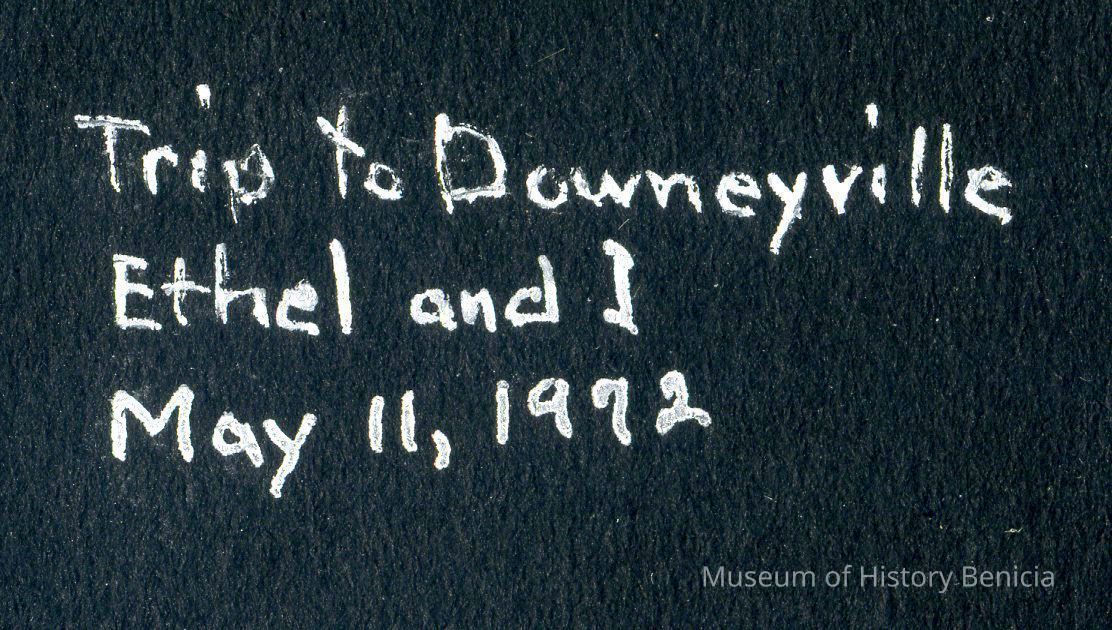 Trip to Downeyville
Ethel and I
May 11, 1972
Museum of History Benicia